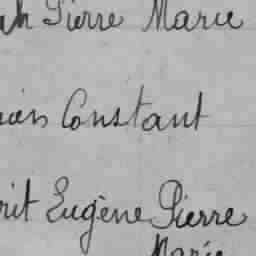 Pierre Marie
Constant
Eugène Pierre
Marie